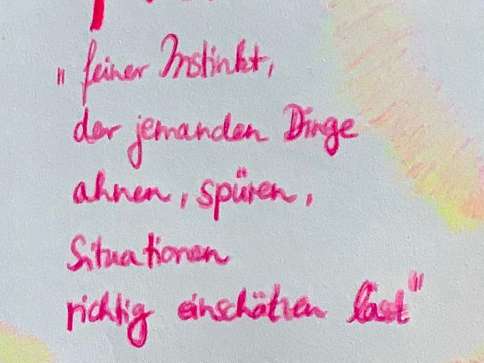 "feiner Instinkt,
der jemanden Dinge
ahnen, spüren,
Situationen
richtig einschätzen läst"